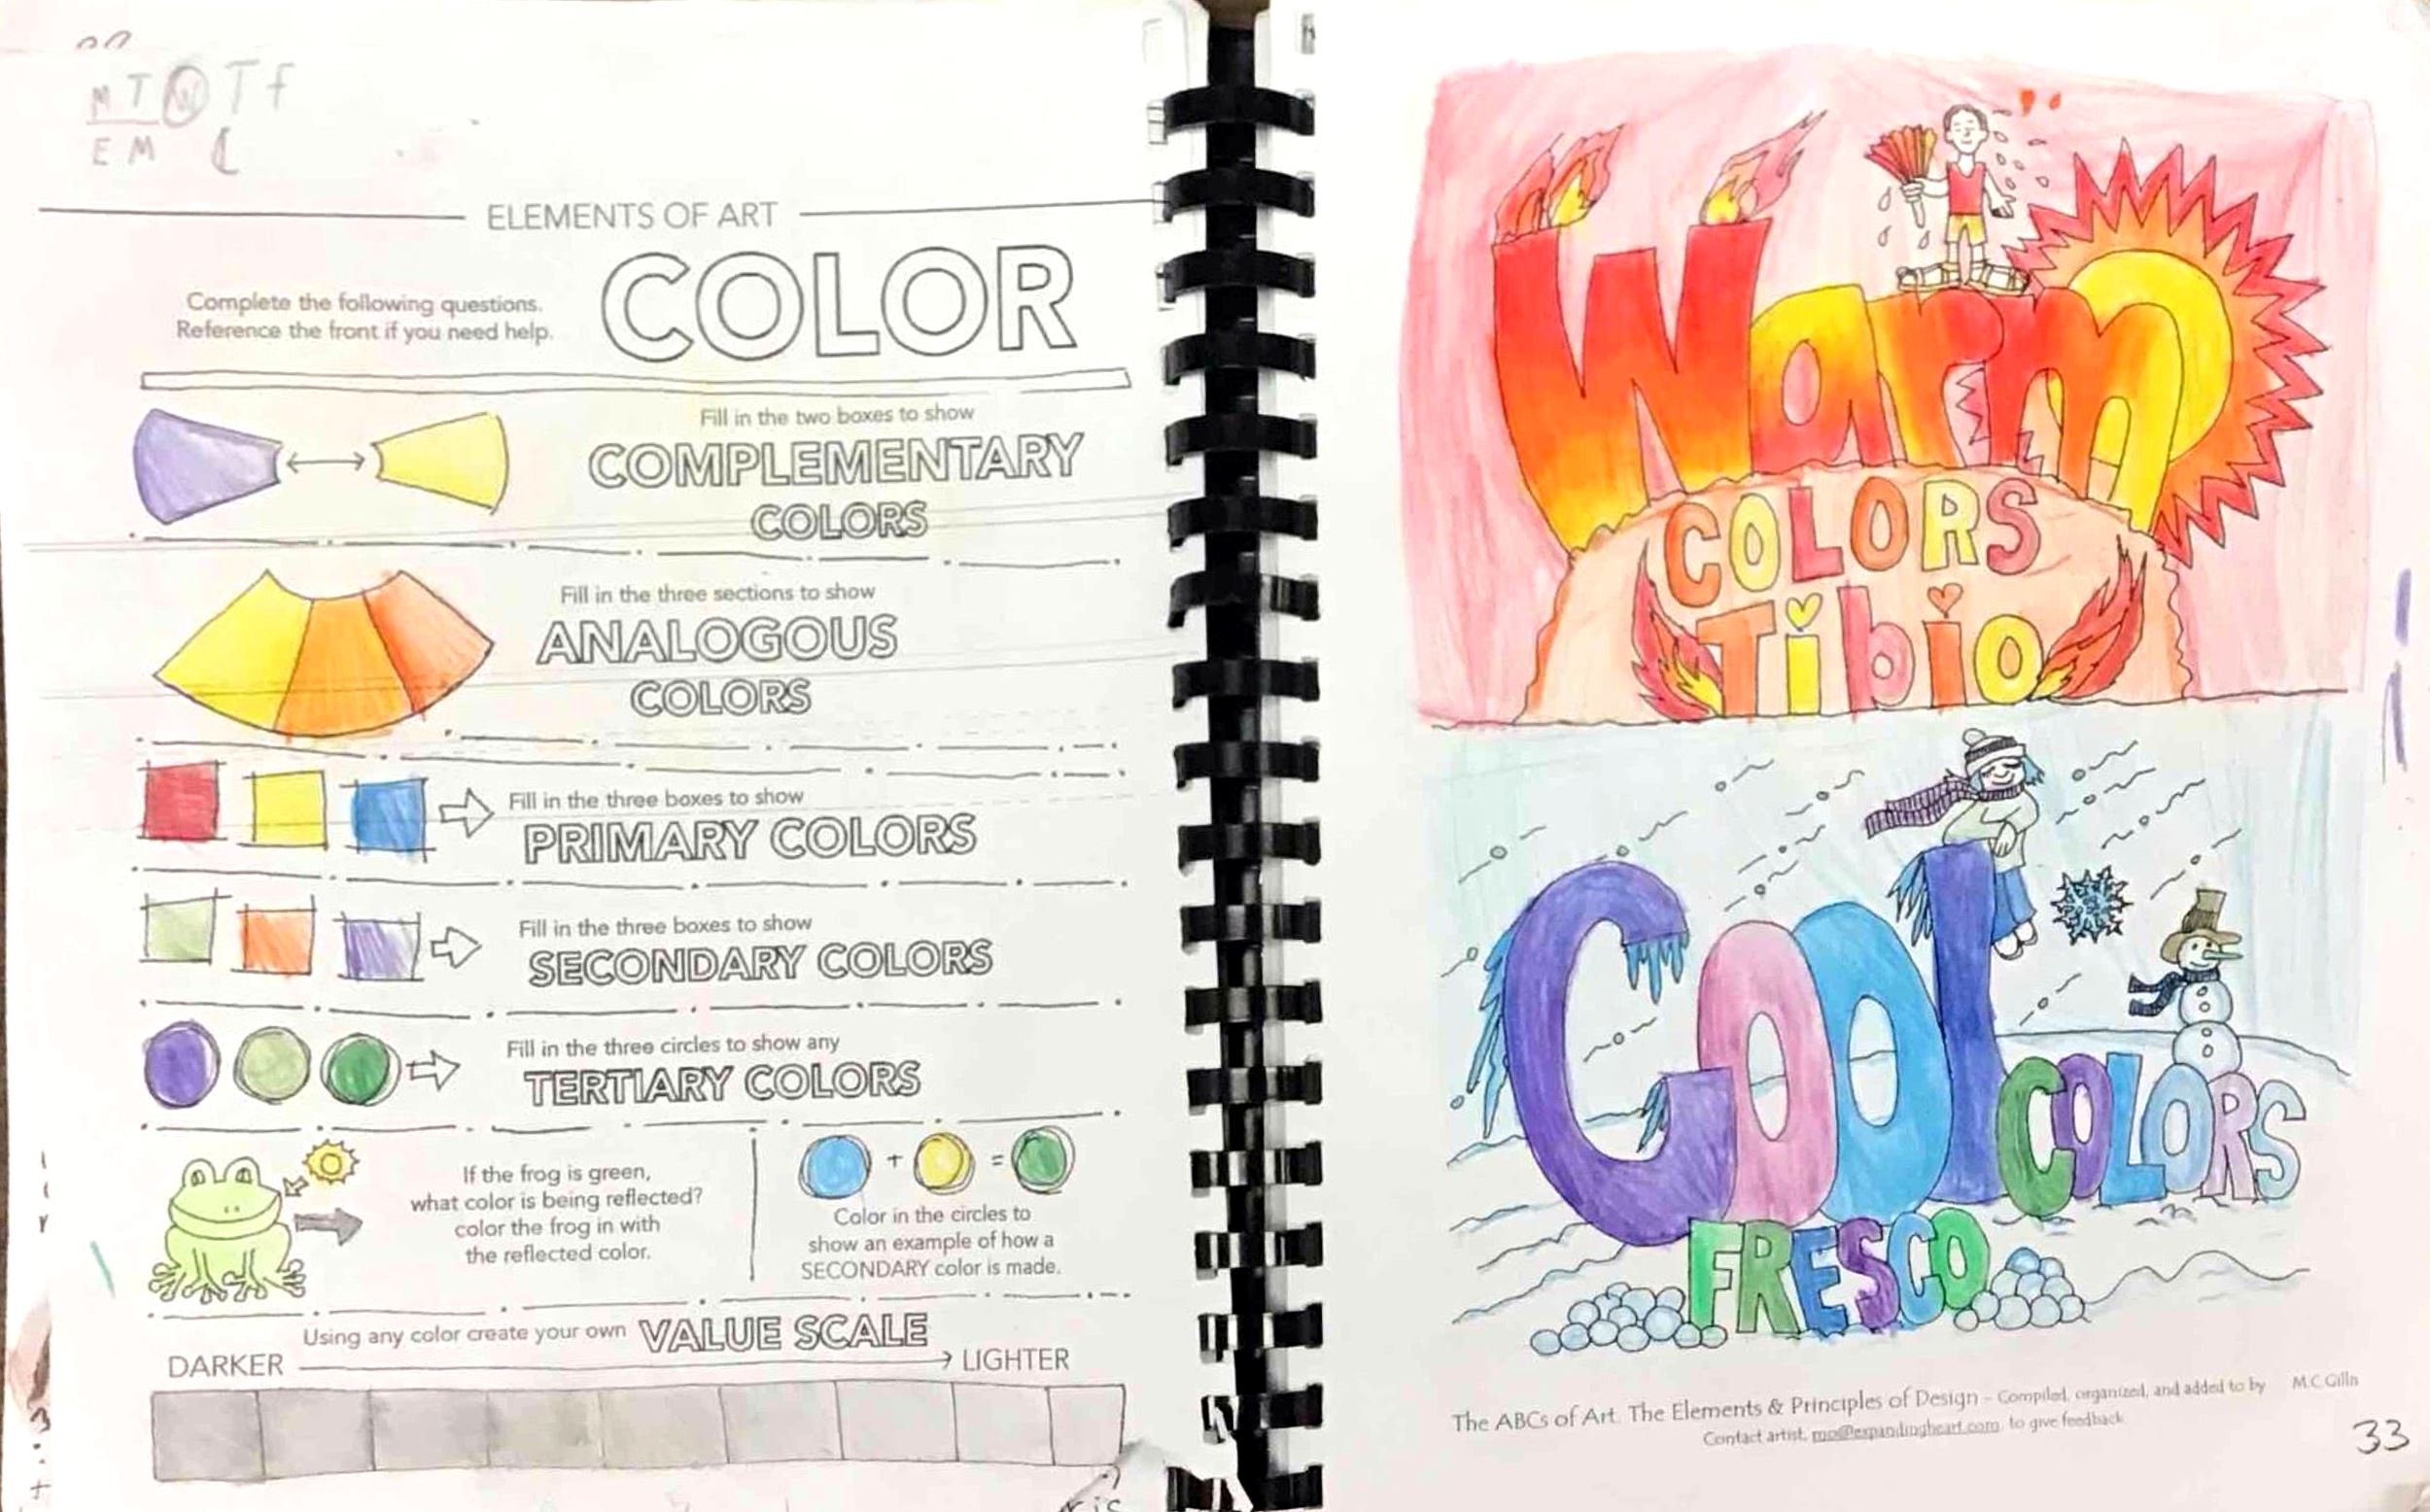 M T W T f
E M
ELEMENTS OF ART
COLOR
Complete the following questions.
Reference the front if you need help.
Fill in the two boxes to show
COMPLEMENTARY
COLORS
Fill in the three sections to show
ANALOGOUS
COLORS
Fill in the three boxes to show
PRIMARY COLORS
Fill in the three boxes to show
SECONDARY COLORS
Fill in the three circles to show any
TERTIARY COLORS
If the frog is green,
what color is being reflected?
color the frog in with
the reflected color.
+ =
Color in the circles to
show an example of how a
SECONDARY color is made.
Using any color create your own VALUE SCALE
DARKER LIGHTER
Warm
COLORS
Tibio
Cool COLORS
FRESCO
The ABCs of Art. The Elements & Principles of Design - Compiled, organized, and added to by M.C.Gillis
Contact artist, mo@expandingheart.com, to give feedback
33